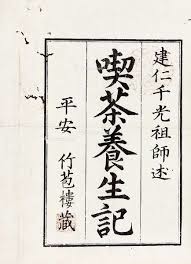 建仁千光祖師述
喫茶養生記
平安 竹苞樓藏